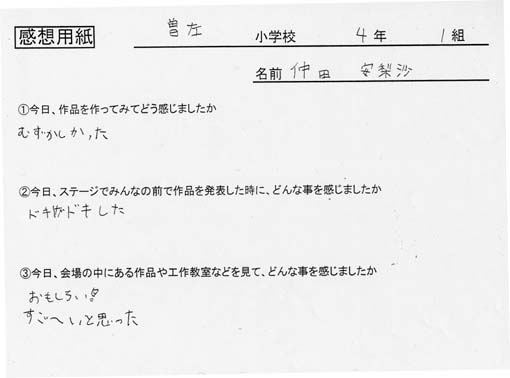 感想用紙
曽左 小学校 4年 1組
名前 仲田 安梨沙
①今日、作品を作ってみてどう感じましたか
むずかしかった
②今日、ステージでみんなの前で作品を発表した時に、どんな事を感じましたか
ドキドキした
③今日、会場の中にある作品や工作教室などを見て、どんな事を感じましたか
おもしろい!
すごへいと思った